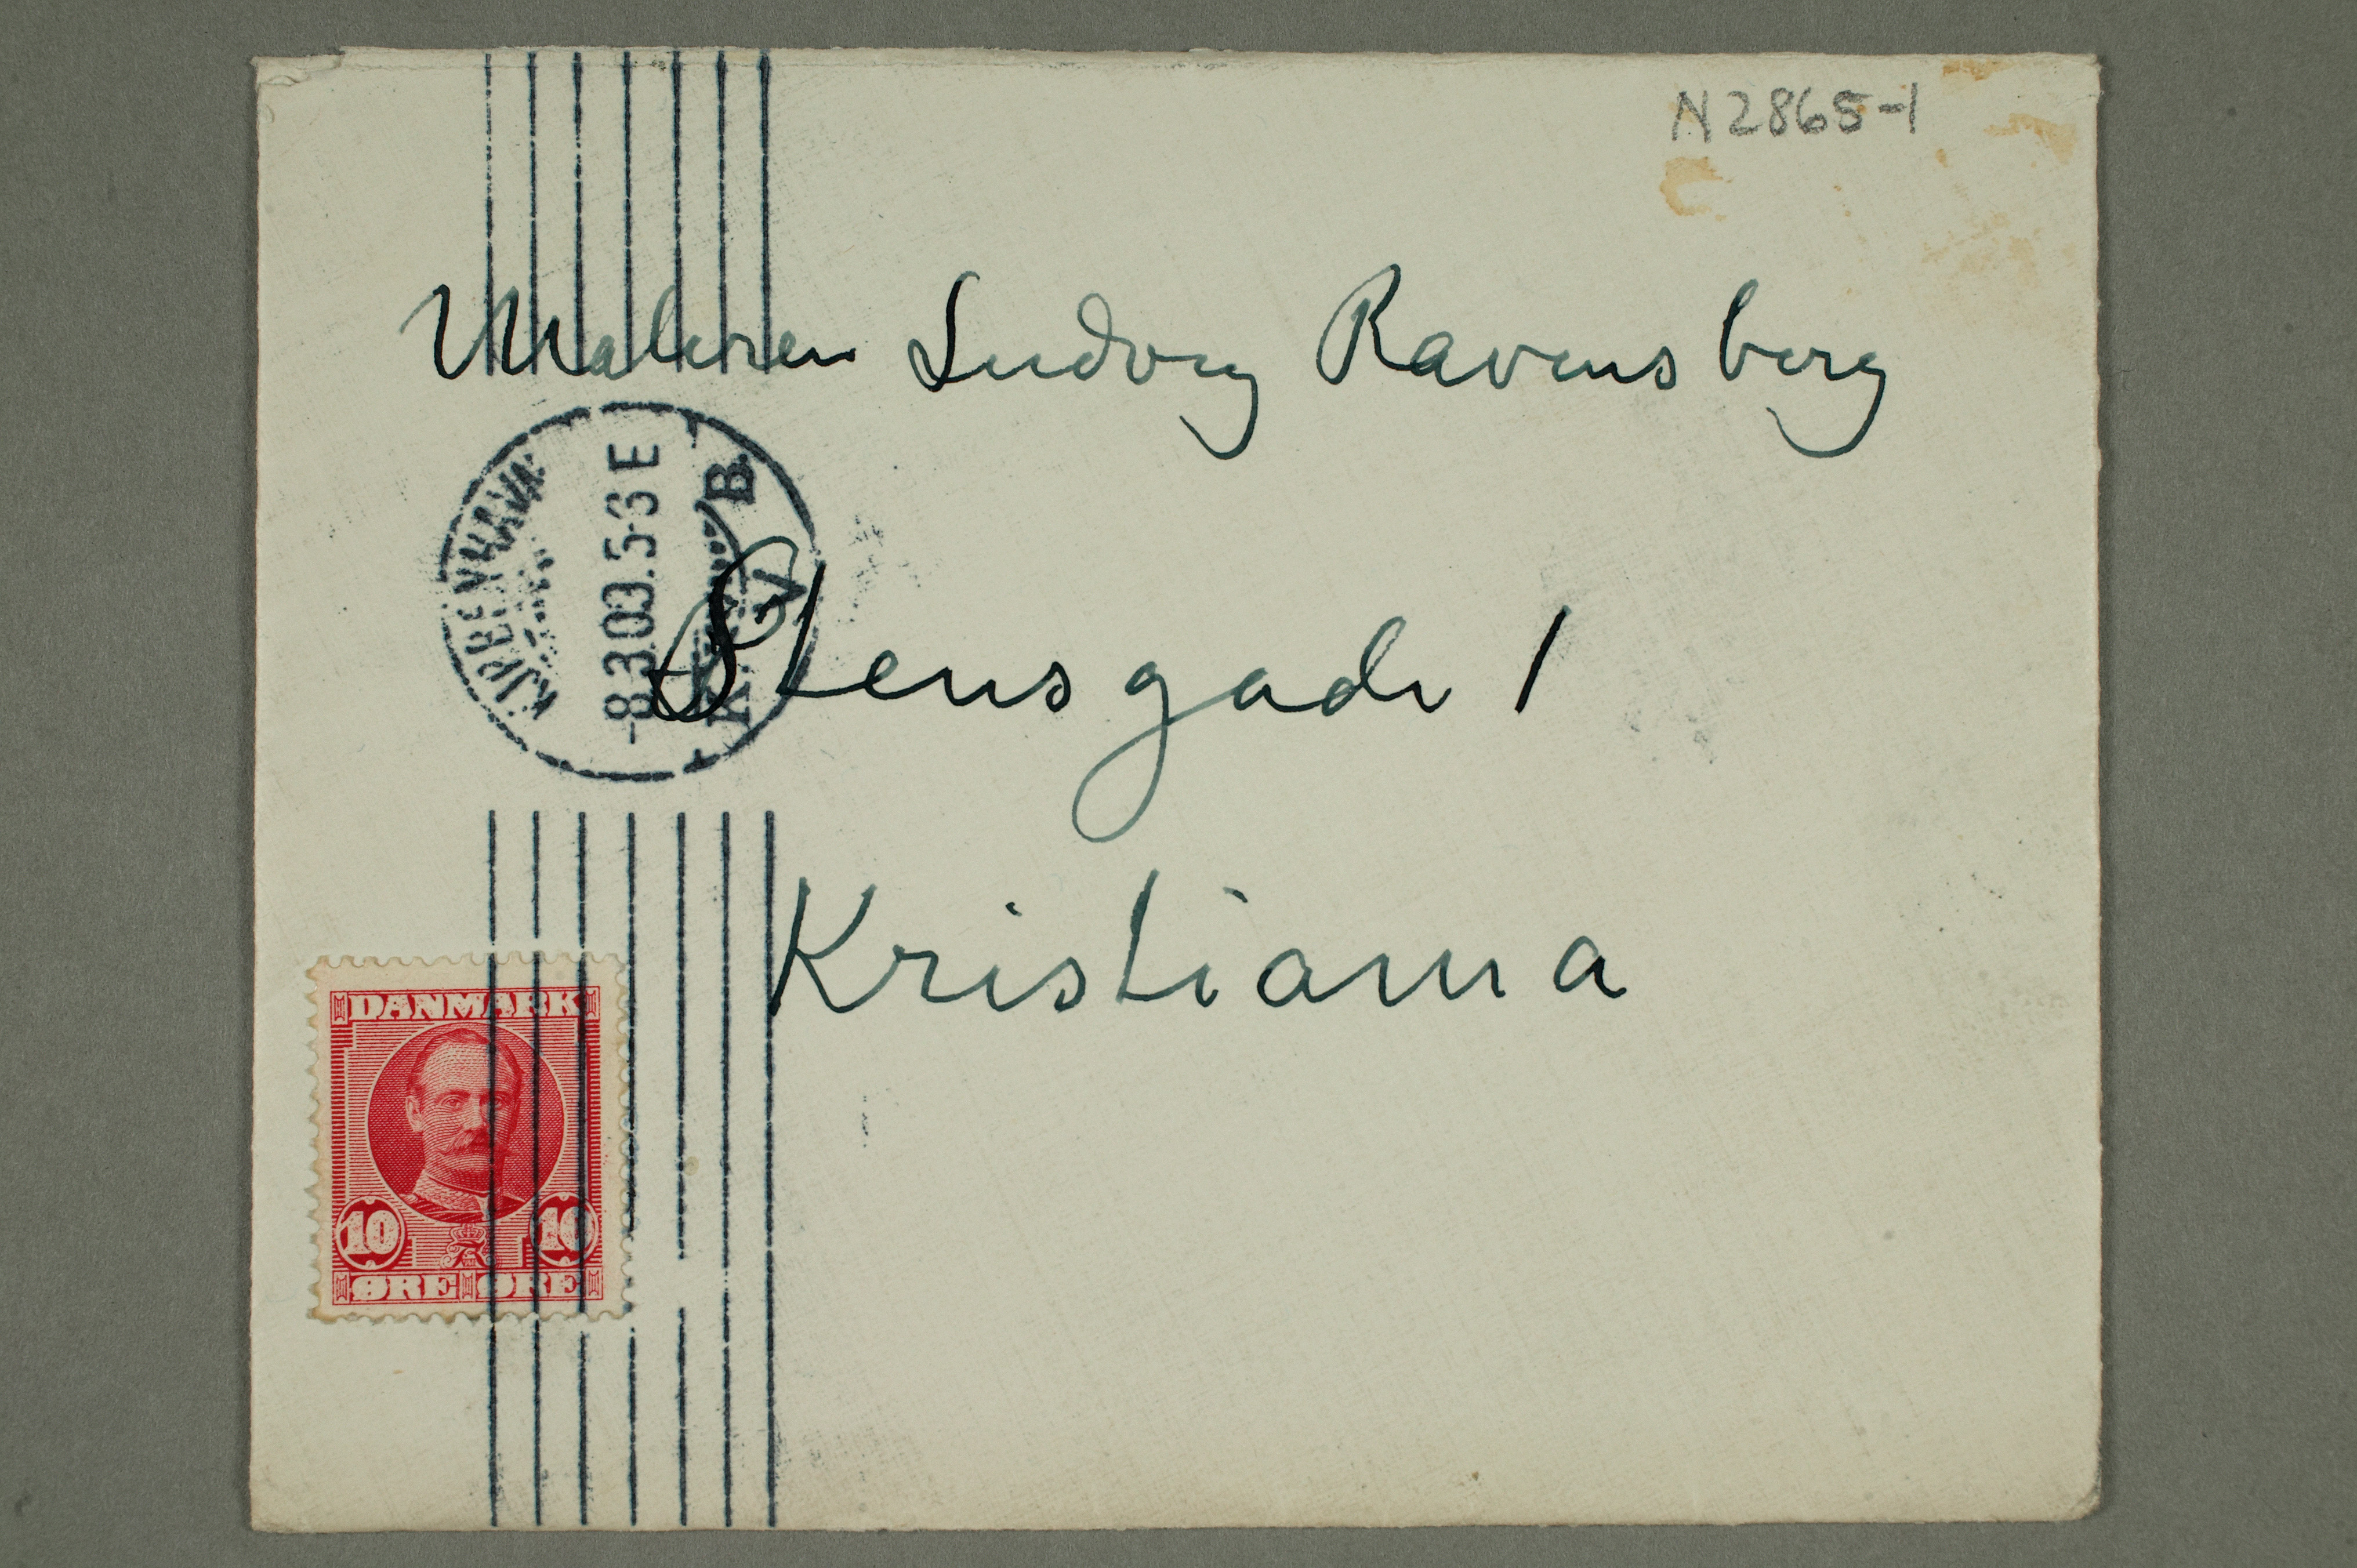 N 2865-1
Maleren Ludvig Ravensberg
KJØBENHAVN
-8.3.09.5-6 E
B.
Stensgade 1
Kristiania
DANMARK
10 10
ØRE ØRE